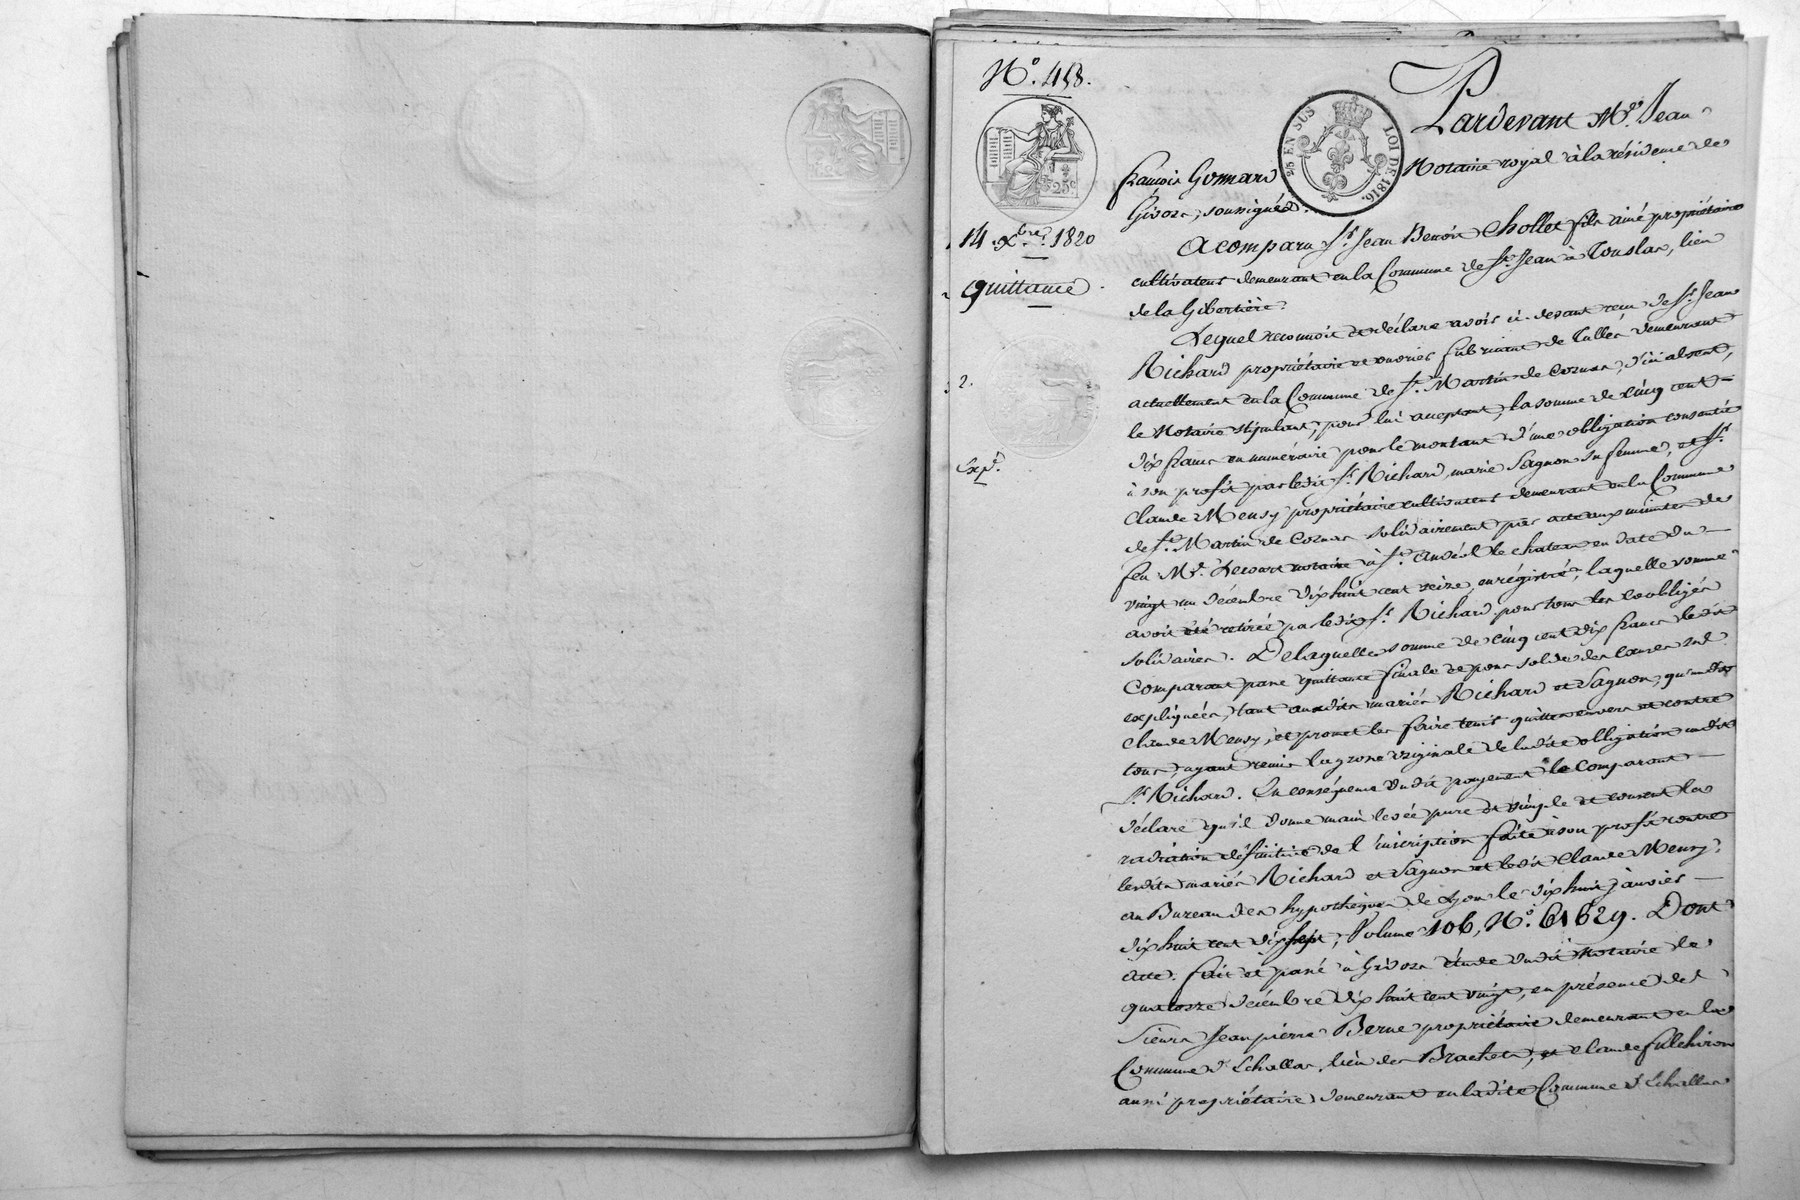 N.º 458.
25 c
2/5 EN SUS LOI DE 1816.
14 xbre. 1820
quittance
2.
Exp.
Pardevant Me. Jean
françois Gonnard Notaire royal à la résidence de
Givors, soussigné.
A comparu Sr. Jean Benoit Chollet fils ainé propriétaire
cultivateur demeurant en la Commune de St. Jean à Touslas, lieu
de la Gibertière.
Lequel reconnoit et déclare avoir ci-devant recu de Sr. Jean
Richard propriétaire et ouvrier fabricant de Tulles demeurant
actuellement en la Commune de St. Martin de Cornas, d'ici absent,
le Notaire stipulant, pour lui acceptant, la somme de cinq cent
dix francs en numéraire pour le montant d'une obligation consentie
à son profit par ledit Sr. Richard, marie Sagnon sa femme, et Sr.
Claude Meusy propriétaire cultivateur demeurant en la Commune
de St. Martin de Cornas solidairement par acte aux minutes de
feu Me. Decourt notaire à St. Andéol le chateau en date du
vingt un décembre dix huit cent seize, enrégistré, laquelle somme
avoit été retirée par ledit Sr. Richard pour tous les coobligés
solidaires. De laquelle somme de cinq cent dix francs ledit
Comparant passe quittance finale et pour solde des causes sus
expliquées, tant auxdits mariés Richard et Sagnon, qu'audit
Claude Meusy, et promet les faire tenir quittes envers et contre
tous, ayant remis la grosse originale de ladite obligation audit
Sr. Richard. En conséquence dudit payement le comparant
déclare qu'il donne main levée pure et simple et consent la
radiation définitive de l'inscription faite à son profit contre
lesdits mariés Richard et Sagnon et ledit Claude Meusy,
au Bureau des hypothèques de Lyon le dix huit janvier
dix huit cent dix sept, Volume 106, N.º 61629. Dont
acte. fait et passé à Givors étude dudit Notaire le
quatorze décembre dix huit cent vingt, en présence de
Sieurs Jean pierre Berne propriétaire demeurant en la
Commune d'Echallas, lieu des Brachets, et Claude fulchiron
aussi propriétaire demeurant en ladite Commune d'Echallas